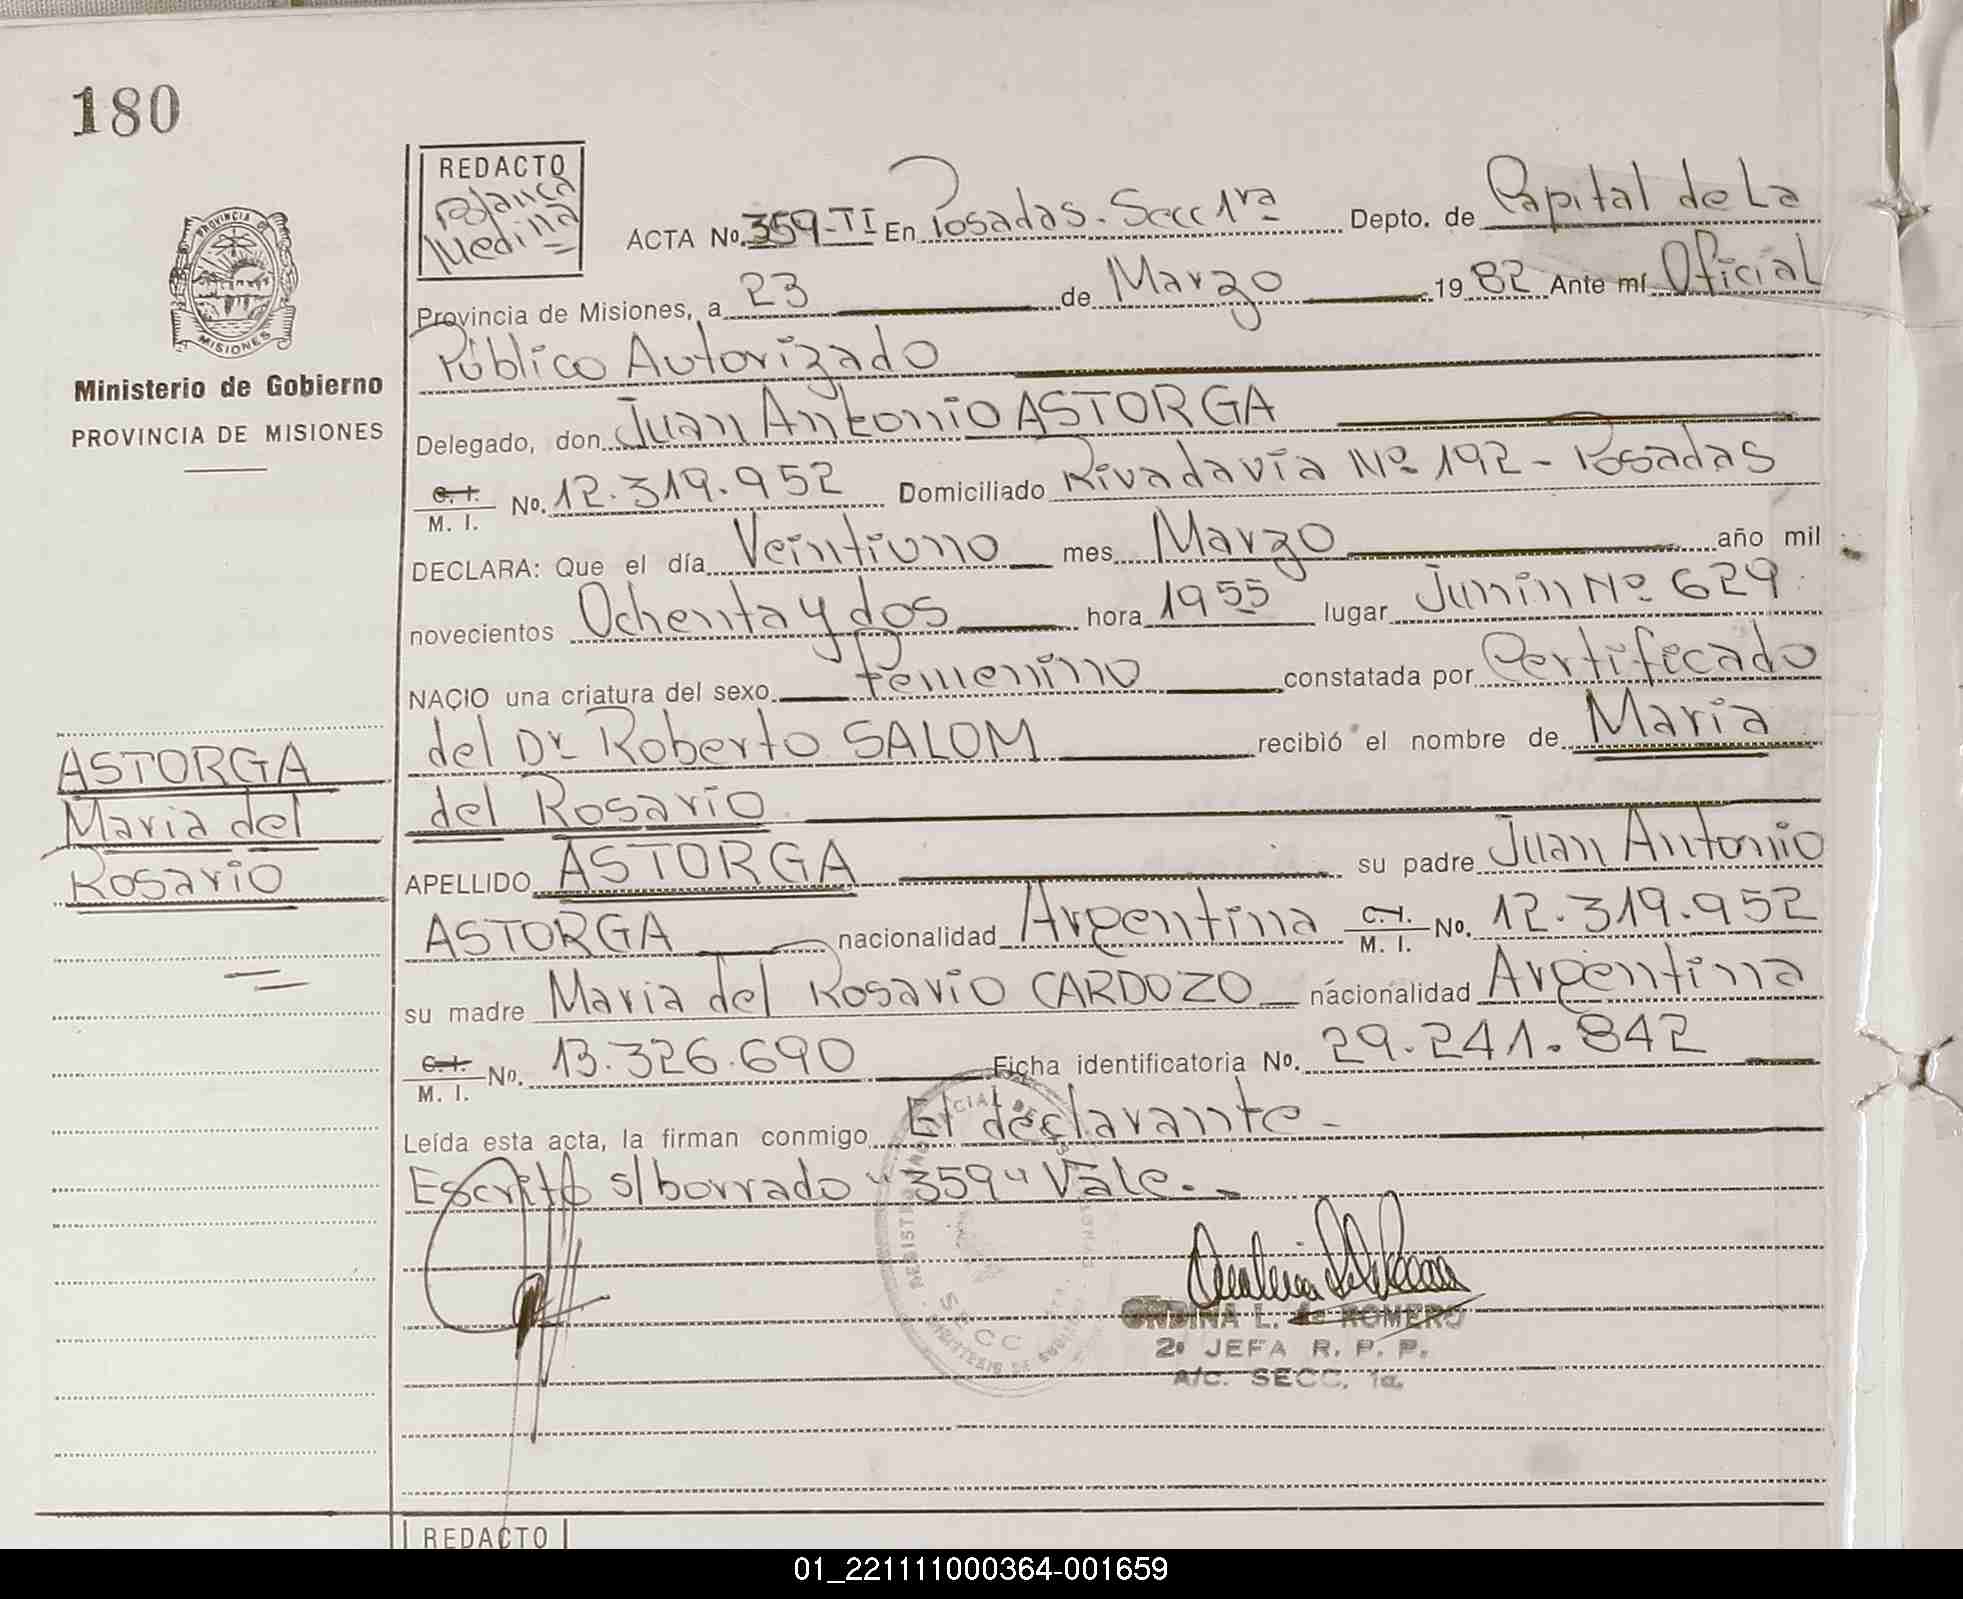 180
REDACTO
Blanca
Medina
ACTA No. 359-TI En Posadas. Secc 1ra Depto. de Capital de La
Provincia de Misiones, a 23 de Marzo 1982 Ante mí Oficial
Público Autorizado
Delegado, don Juan Antonio ASTORGA
C. I. M. I. No. 12.319.952 Domiciliado Rivadavia Nº 192 - Posadas
DECLARA: Que el día Veintiuno mes Marzo año mil
novecientos Ochenta y dos hora 1955 lugar Junin Nº 629
NACIO una criatura del sexo Femenino constatada por Certificado
del Dr Roberto SALOM recibió el nombre de Maria
del Rosario
APELLIDO ASTORGA su padre Juan Antonio
ASTORGA nacionalidad Argentina C. I. M. I. No. 12.319.952
su madre Maria del Rosario CARDOZO nacionalidad Argentina
C. I. M. I. No. 13.326.690 Ficha identificatoria No. 29.241.842
Leída esta acta, la firman conmigo El declarante -
Escrito s/borrado "359" Vale. -
ONDINA L. de ROMERO
2ª JEFA R. P. P.
A/C. SECC. 1a.
PROVINCIA DE
MISIONES
Ministerio de Gobierno
PROVINCIA DE MISIONES
ASTORGA
Maria del
Rosario
SECC
REDACTO
01_221111000364-001659